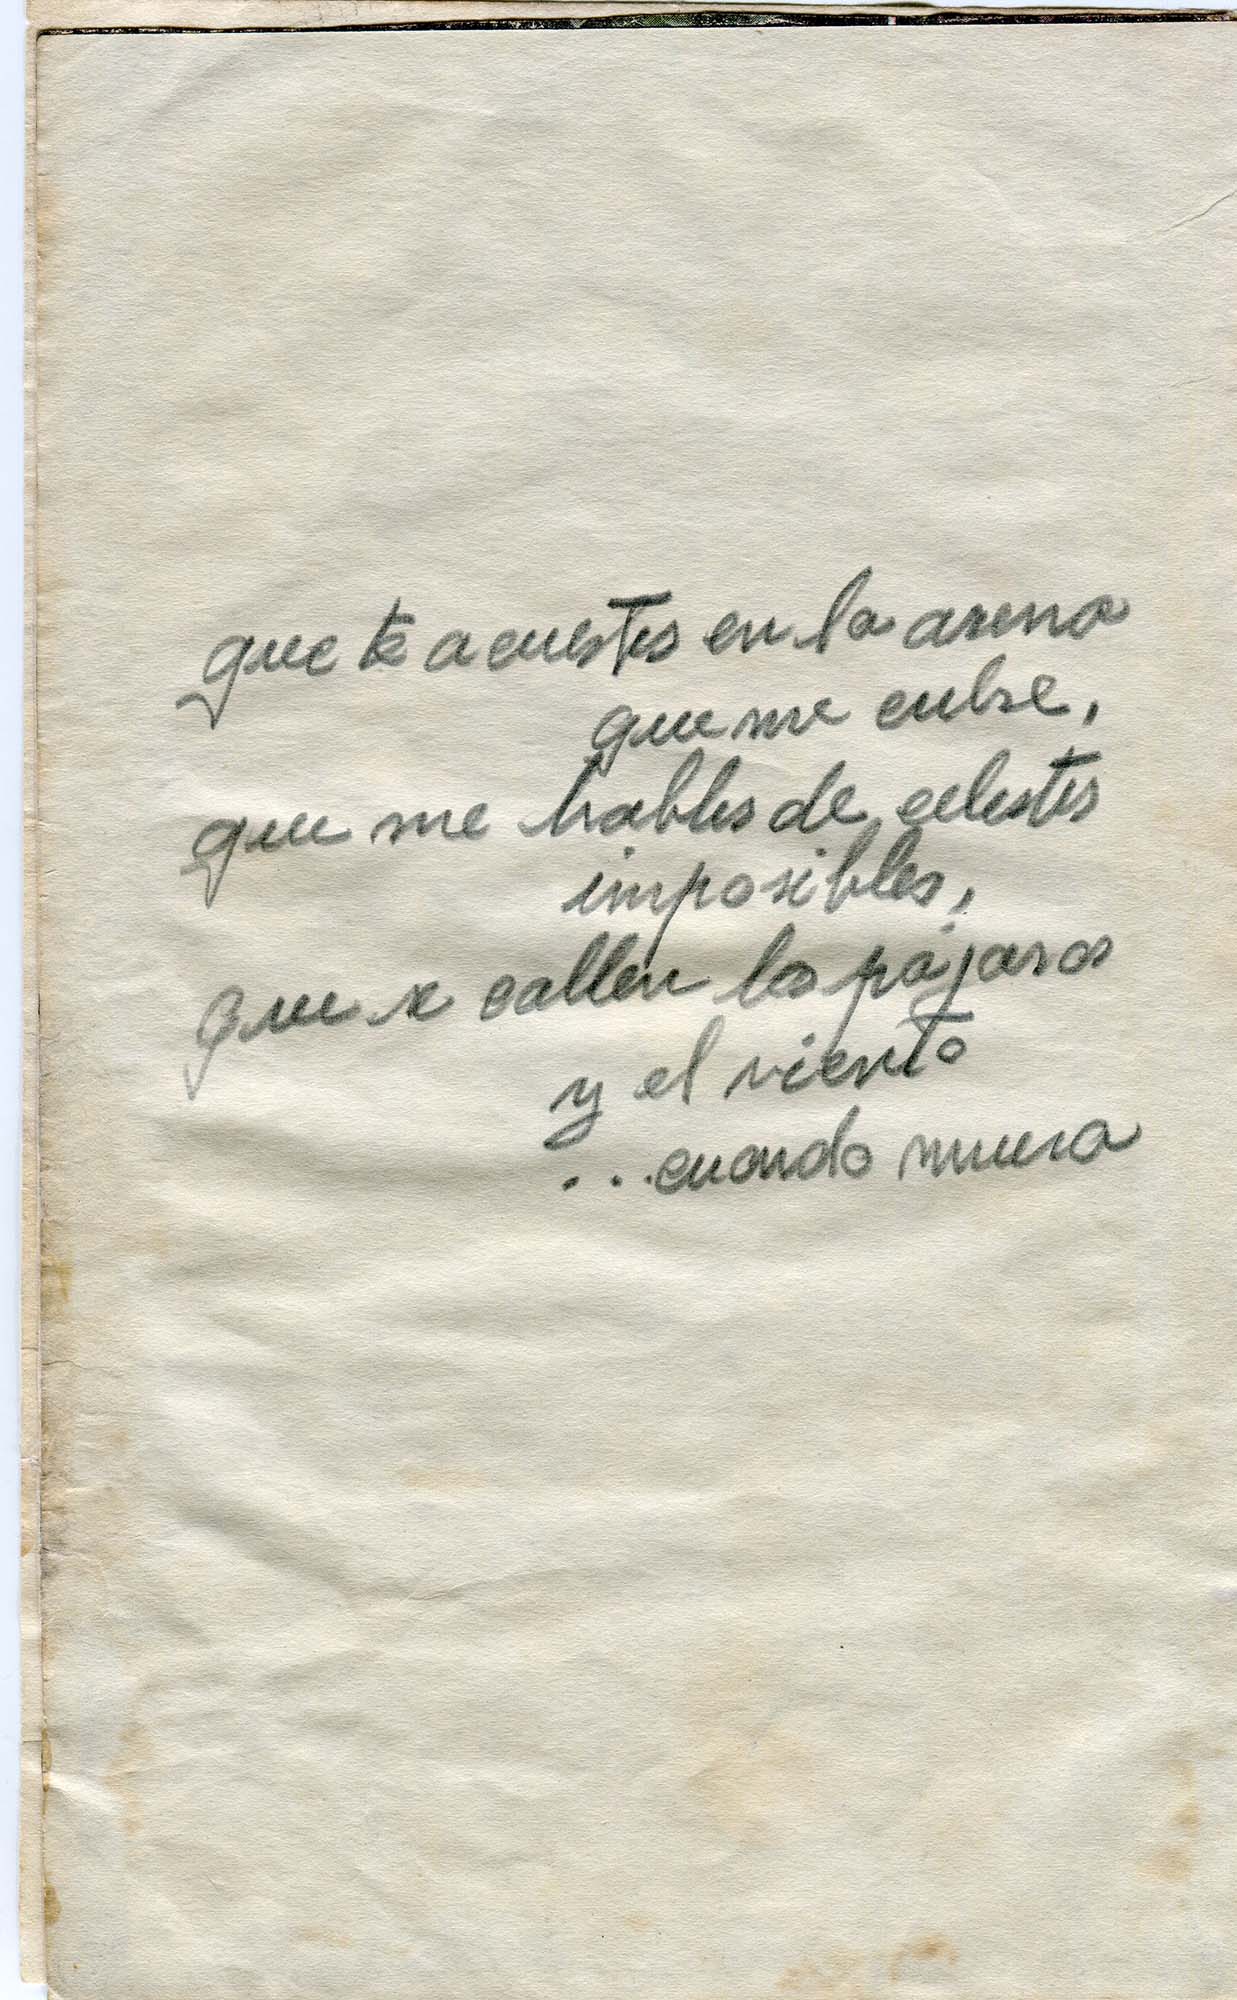 que te acuestes en la arena
que me cubre,
que me hables de celestes
imposibles,
que se callen los pájaros
y el viento
...cuando muera